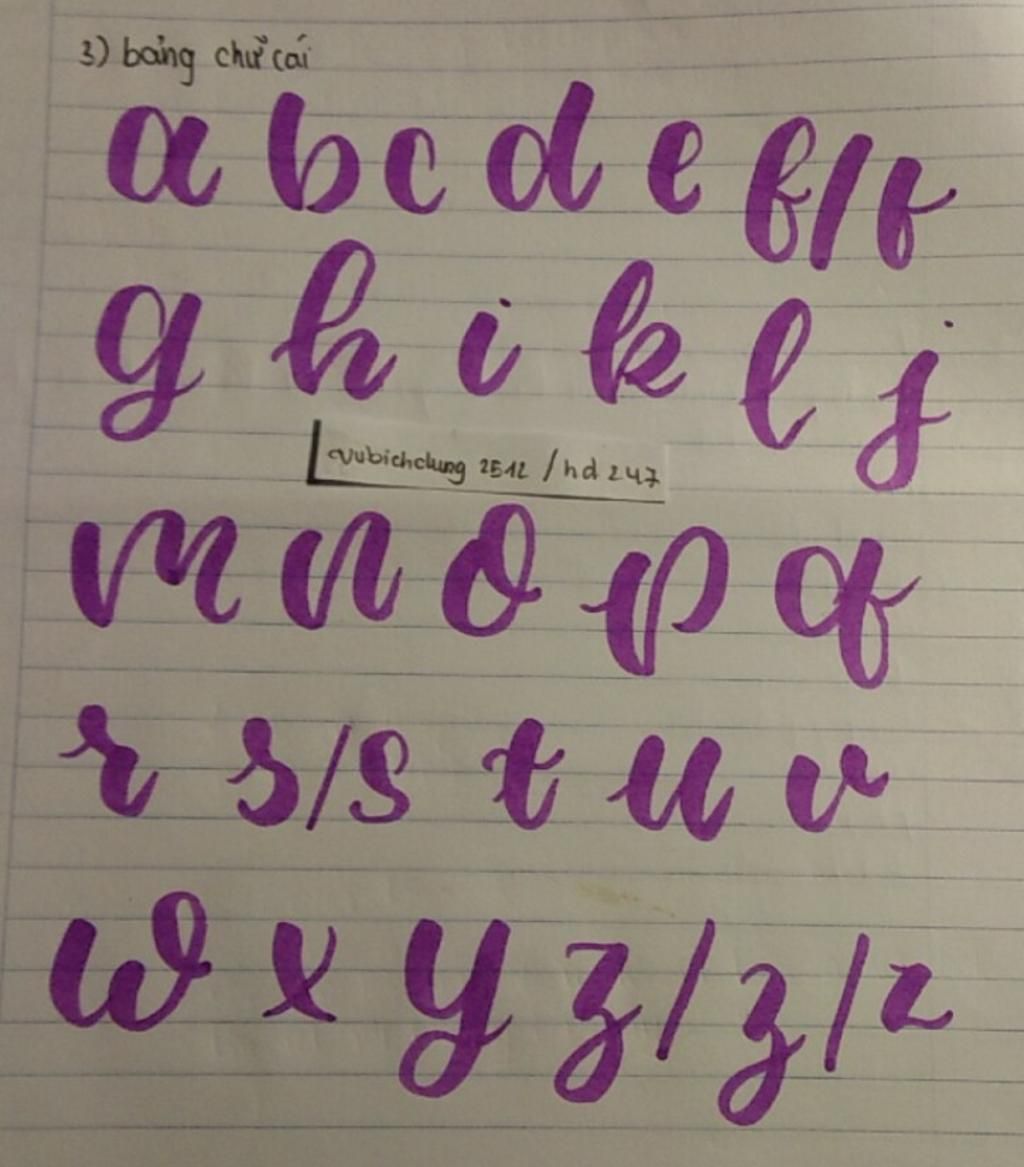 3) bảng chữ cái
a b c d e f/f
g h i k l j
vubichdung 2512 / hd 247
m n o p q
r s/s t u v
w x y z/z/z